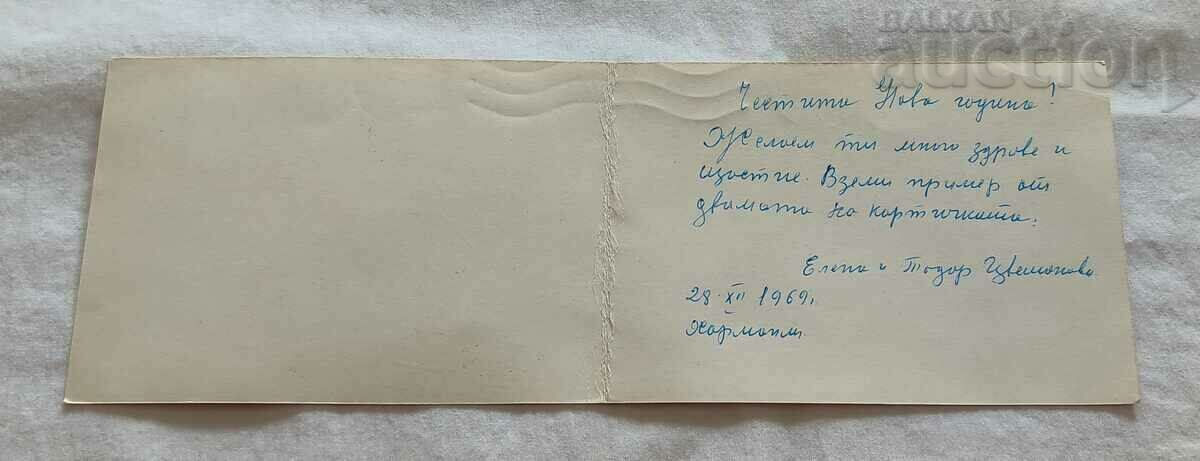 BALKAN
auction
Честита Нова година!
Желаем ти много здраве и
щастие. Вземи пример от
двамата на картичката.
Елена и Тодор Цветанови
28. XII 1969г.
Харманли